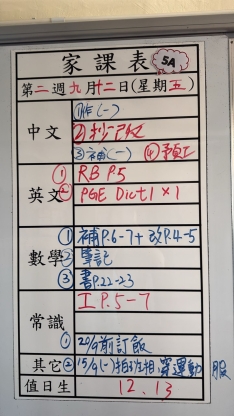 家課表 5A
第二週九月十二日(星期五)
中文
①作(一)
②抄改
③補(一) ④預工
英文
① RB P.5
② PGE Dict 1 × 1
數學
① 補P.6-7 + 改P.4-5
② 筆記
③ 書P.22-23
常識
工P.5-7
① 20/9前訂飯
其它 ② 15/9(一)拍班相 穿運動服
值日生 12, 13